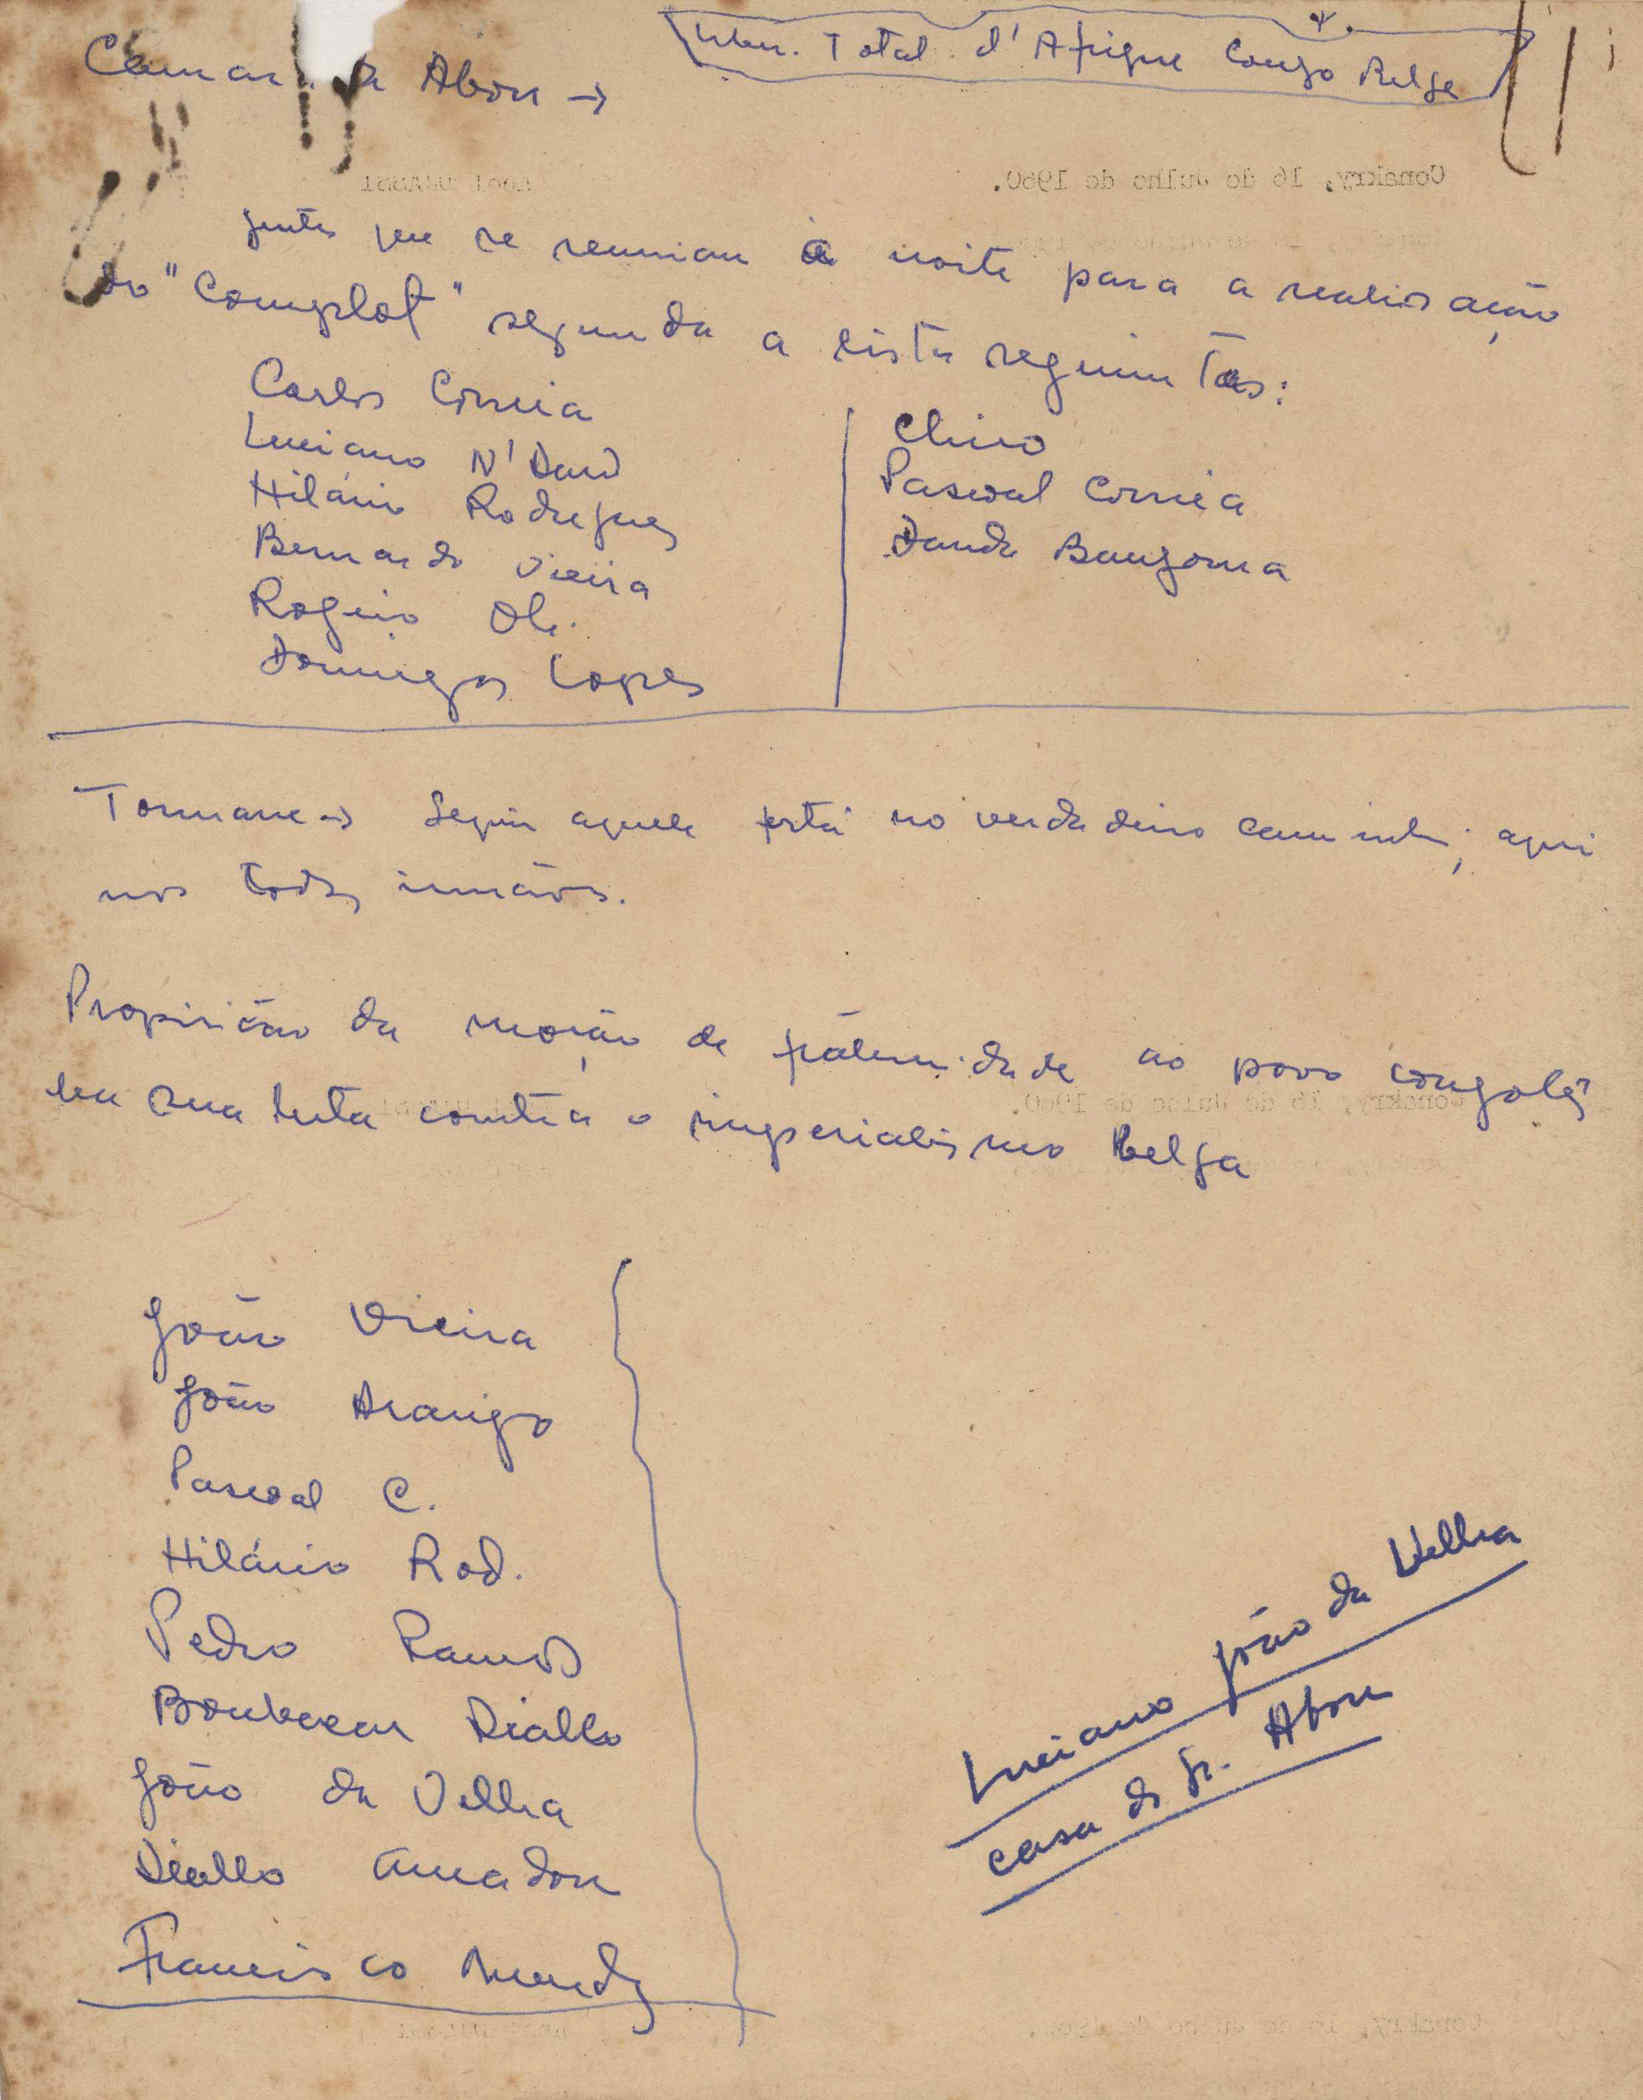 Camarada Abou →
Liber. Total d'Afrique Congo Belge
Conakry, 16 de Julho de 1960.
gentes que se reuniam à noite para a realisação
do "Complot" segunda a lista seguintes:
Carlos Correia
Luciano N'Daw
Hilário Rodrigues
Bernardo Vieira
Rogério Oli.
Domingos Lopes
Chico
Pascoal Correia
Dauda Bangoura
Seguir aquele está no verdadeiro caminho; aqui
nos todos irmãos.
Proposição da moção de fráternidade ao povo congolês
na sua luta contra o imperialismo Belga
João Vieira
João Araujo
Pascoal C.
Hilário Rod.
Pedro Ramos
Boubacar Diallo
João da Velha
Diallo Amadou
Francisco Mendy
Luciano João da Velha
casa do Sr. Abou
Conakry, 16 de Julho de 1960.